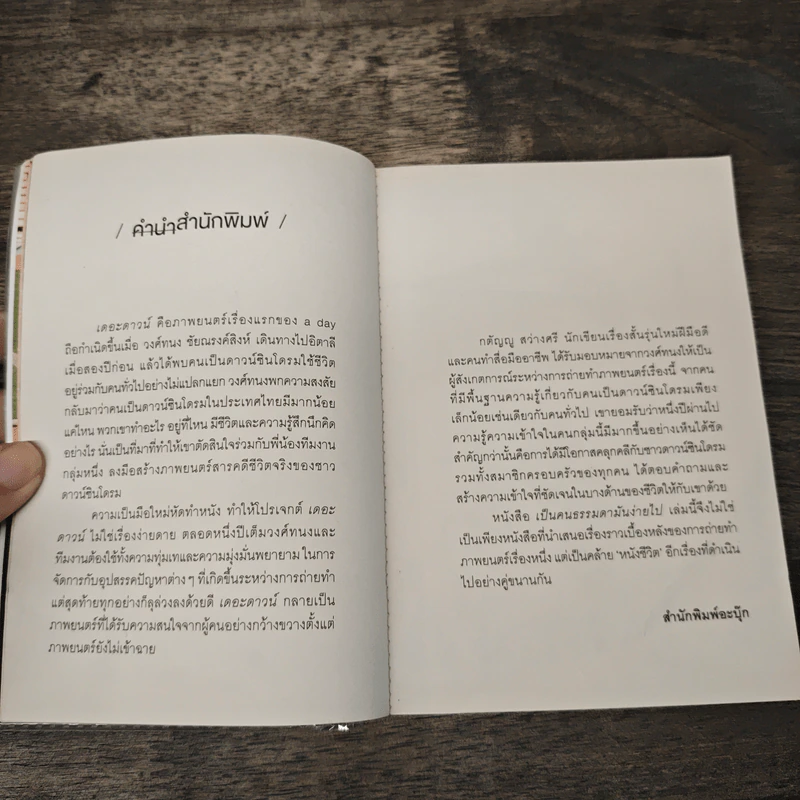 / คำนำสำนักพิมพ์ /
เดอะดาวน์ คือภาพยนตร์เรื่องแรกของ a day
ถือกำเนิดขึ้นเมื่อ วงศ์ทนง ชัยณรงค์สิงห์ เดินทางไปอิตาลี
เมื่อสองปีก่อน แล้วได้พบคนเป็นดาวน์ซินโดรมใช้ชีวิต
อยู่ร่วมกับคนทั่วไปอย่างไม่แปลกแยก วงศ์ทนงพกความสงสัย
กลับมาว่าคนเป็นดาวน์ซินโดรมในประเทศไทยมีมากน้อย
แค่ไหน พวกเขาทำอะไร อยู่ที่ไหน มีชีวิตและความรู้สึกนึกคิด
อย่างไร นั่นเป็นที่มาที่ทำให้เขาตัดสินใจร่วมกับพี่น้องทีมงาน
กลุ่มหนึ่ง ลงมือสร้างภาพยนตร์สารคดีชีวิตจริงของชาว
ดาวน์ซินโดรม
ความเป็นมือใหม่หัดทำหนัง ทำให้โปรเจกต์ เดอะ
ดาวน์ ไม่ใช่เรื่องง่ายดาย ตลอดหนึ่งปีเต็มวงศ์ทนงและ
ทีมงานต้องใช้ทั้งความทุ่มเทและความมุ่งมั่นพยายาม ในการ
จัดการกับอุปสรรคปัญหาต่างๆ ที่เกิดขึ้นระหว่างการถ่ายทำ
แต่สุดท้ายทุกอย่างก็ลุล่วงลงด้วยดี เดอะดาวน์ กลายเป็น
ภาพยนตร์ที่ได้รับความสนใจจากผู้คนอย่างกว้างขวางตั้งแต่
ภาพยนตร์ยังไม่เข้าฉาย
กตัญญู สว่างศรี นักเขียนเรื่องสั้นรุ่นใหม่ฝีมือดี
และคนทำสื่อมืออาชีพ ได้รับมอบหมายจากวงศ์ทนงให้เป็น
ผู้สังเกตการณ์ระหว่างการถ่ายทำภาพยนตร์เรื่องนี้ จากคน
ที่มีพื้นฐานความรู้เกี่ยวกับคนเป็นดาวน์ซินโดรมเพียง
เล็กน้อยเช่นเดียวกับคนทั่วไป เขายอมรับว่าหนึ่งปีผ่านไป
ความรู้ความเข้าใจในคนกลุ่มนี้มีมากขึ้นอย่างเห็นได้ชัด
สำคัญกว่านั้นคือการได้มีโอกาสคลุกคลีกับชาวดาวน์ซินโดรม
รวมทั้งสมาชิกครอบครัวของทุกคน ได้ตอบคำถามและ
สร้างความเข้าใจที่ชัดเจนในบางด้านของชีวิตให้กับเขาด้วย
หนังสือ เป็นคนธรรมดามันง่ายไป เล่มนี้จึงไม่ใช่
เป็นเพียงหนังสือที่นำเสนอเรื่องราวเบื้องหลังของการถ่ายทำ
ภาพยนตร์เรื่องหนึ่ง แต่เป็นคล้าย 'หนังชีวิต' อีกเรื่องที่ดำเนิน
ไปอย่างคู่ขนานกัน
สำนักพิมพ์อะบุ๊ก